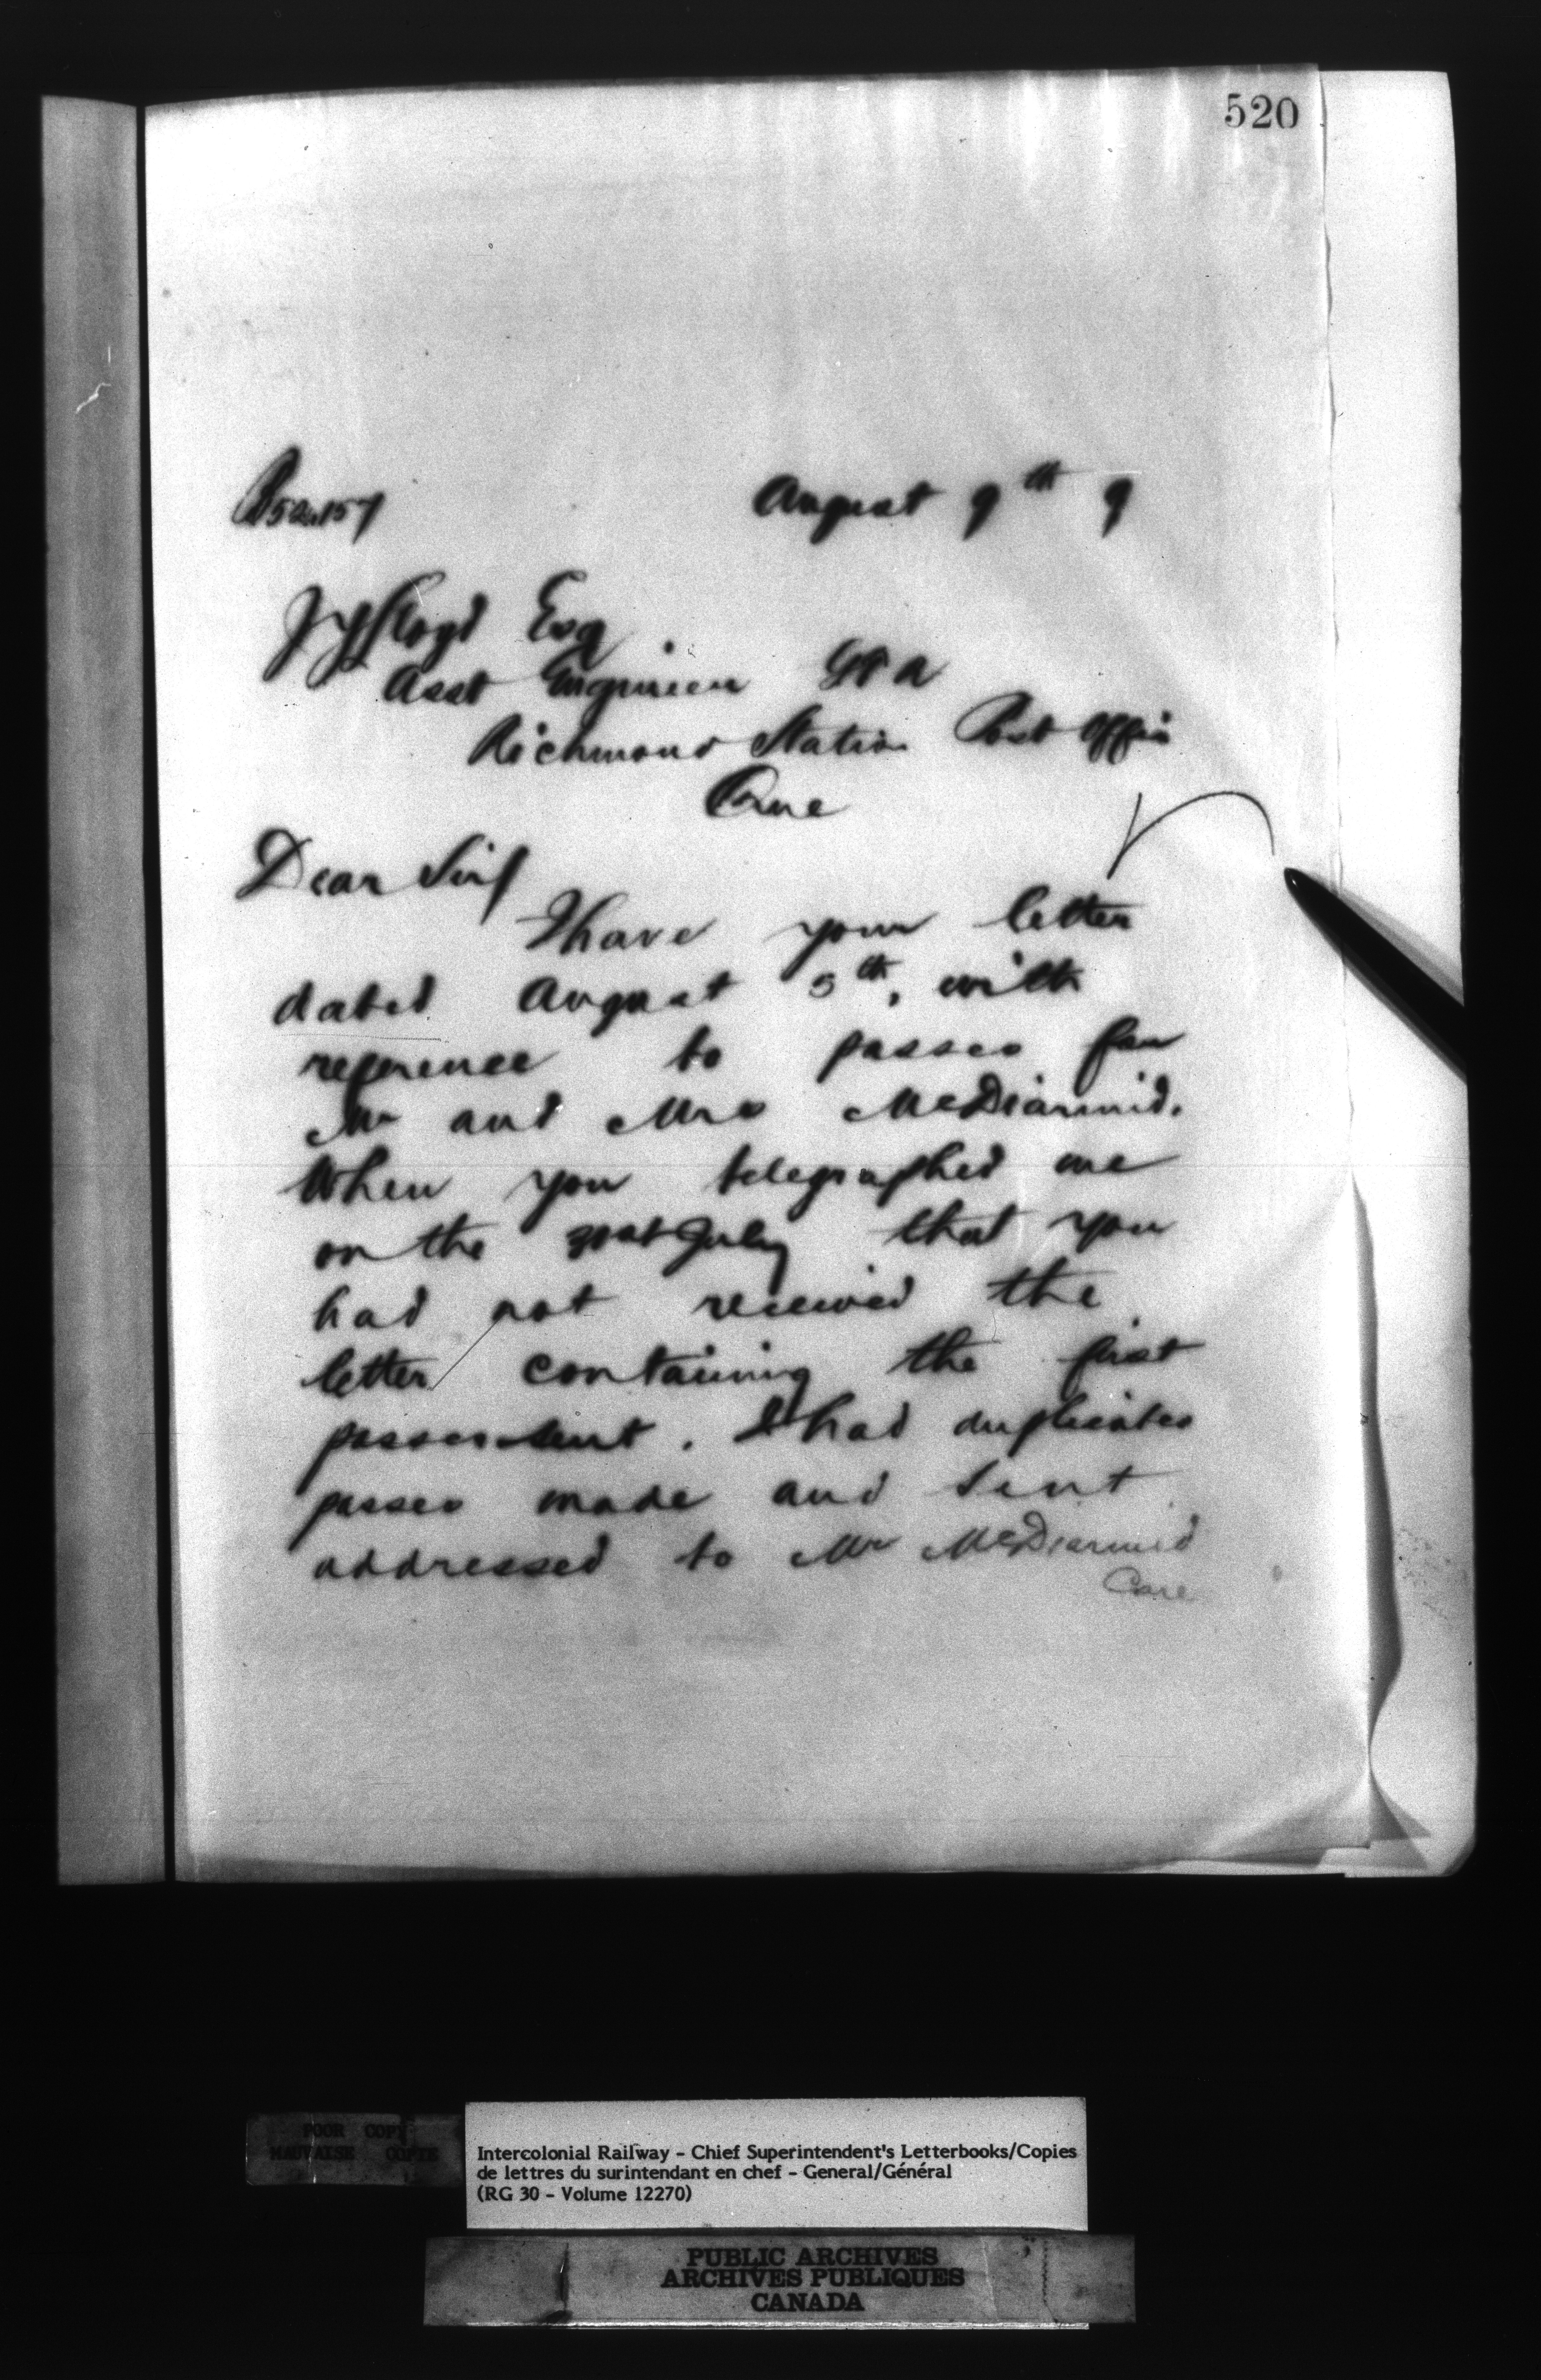 520
August 9th 9
Lloyd Esq
Asst Engineer
Richmond Station Post Office
Que
Dear Sir/
I have your letter
dated August 5th, with
reference to passes for
Mr and Mrs McDiarmid.
When you telegraphed me
on the 31st July that you
had not received the
letter containing the first
passes sent. I had duplicates
passes made and sent
addressed to Mr McDiarmid
Care
POOR COPY
MAUVAISE COPIE
Intercolonial Railway - Chief Superintendent's Letterbooks/Copies
de lettres du surintendant en chef - General/Général
(RG 30 - Volume 12270)
PUBLIC ARCHIVES
ARCHIVES PUBLIQUES
CANADA